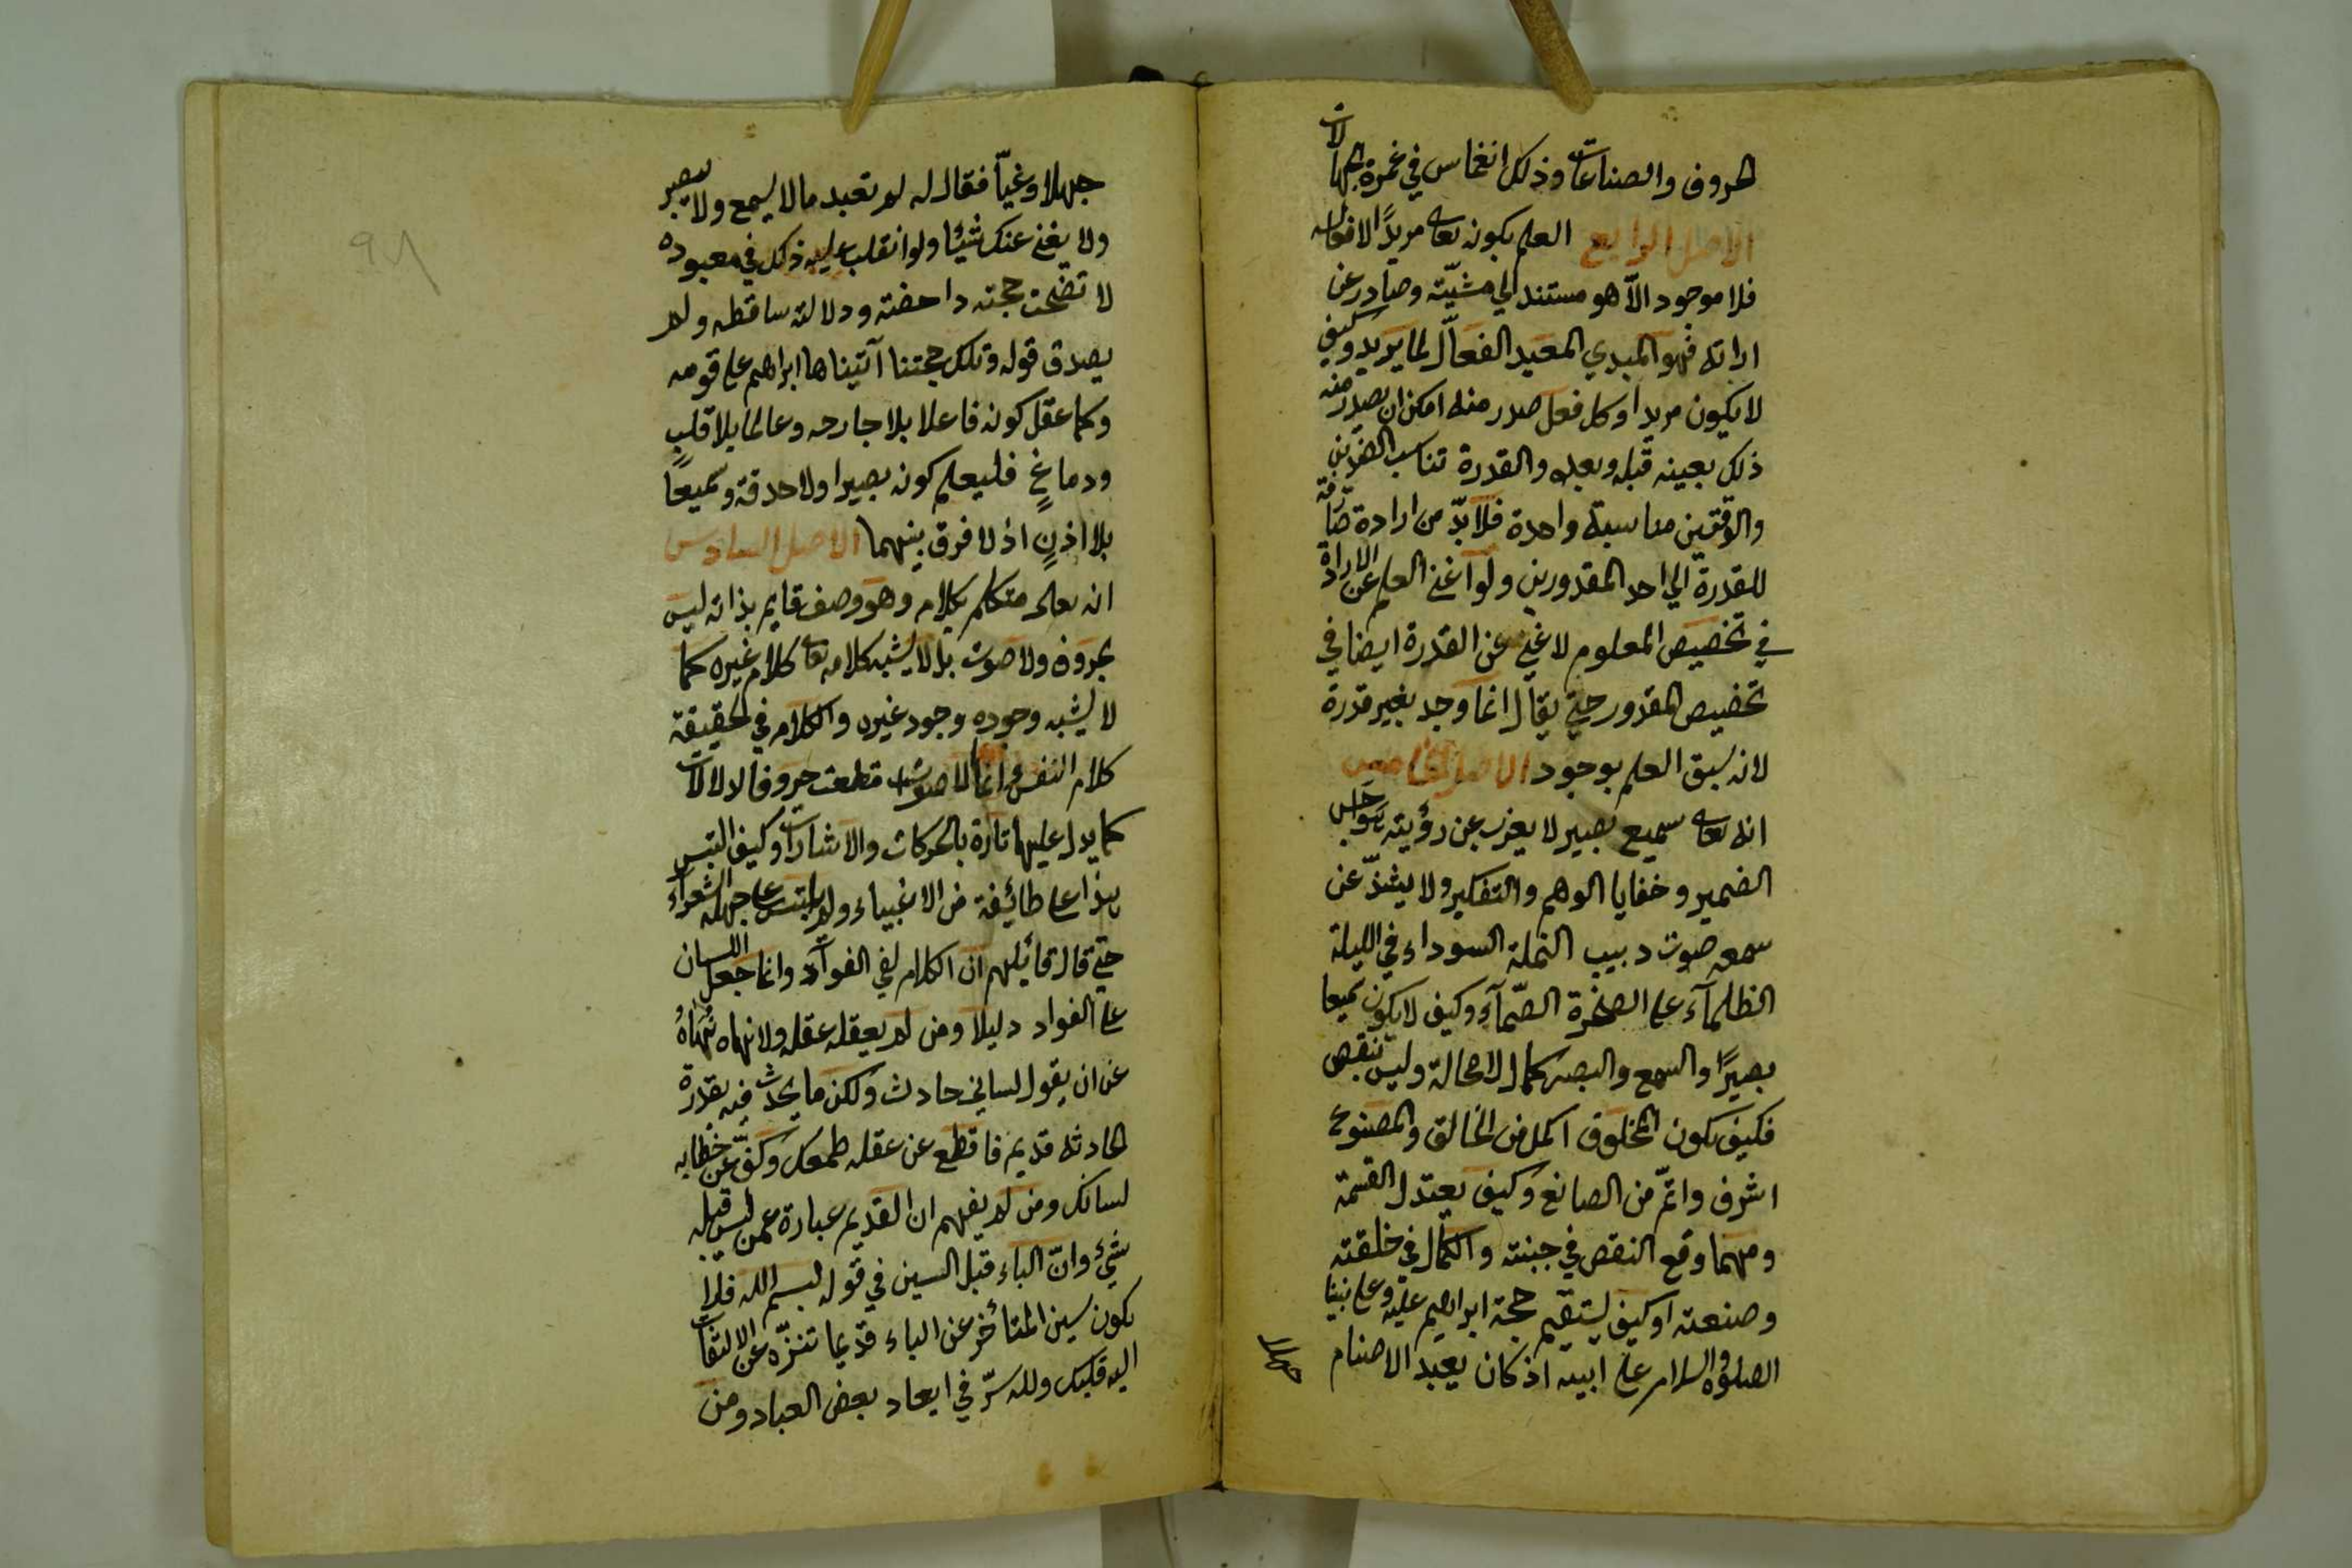 الحروف والصناعات وذلك انغماس في غمرة الجهالات
الاصل الرابع العلم بكونه تعالى مريدًا لافعاله
فلا موجود الّا هو مستند الي مشيّته وصادر عن
ارادته فهو المبدي المعيد الفعّال لما يريد وكيف
لا يكون مريدا وكل فعل صدر منه امكن ان يصدر منه
ذلك بعينه قبله وبعده والقدرة تناسب الضدين
والوقتين مناسبة واحدة فلا بدّ من ارادة صارفة
للقدرة الي احد المقدورين ولو اغني العلم عن الارادة
في تخصيص المعلوم لاغني عن القدرة ايضا في
تخصيص المقدور حتي يقال انما وجد بغير قدرة
لانه سبق العلم بوجود الاصل الخامس
انه تعالى سميع بصير لا يعزب عن رؤيته هواجس
الضمير وخفايا الوهم والتفكير ولا يشذّ عن
سمعه صوت دبيب النملة السوداء في الليلة
الظلمآء على الصخرة الصّمآء وكيف لا يكون سميعا
بصيرًا والسمع والبصر كمال لا محالة وليس بنقص
فكيف يكون المخلوق اكمل من الخالق والمصنوع
اشرف واتمّ من الصانع وكيف يعتدل القسمة
ومهما وقع النقص في جبنته والكمال في خلقته
وصنعته او كيف يستقيم حجة ابراهيم عليه وعلى نبينا
الصلوة والسلام على ابيه اذ كان يعبد الاصنام
جهلا
جهلا وغيّا فقال له لم تعبد ما لا يسمع ولا يبصر
ولا يغني عنك شيئا ولو انقلب عليه ذلك في معبوده
لا تضحت حجته داحضة ودلالته ساقطه ولم
يصدق قوله وتلك حجتنا آتيناها ابراهيم على قومه
وكما عقل كونه فاعلا بلا جارحه وعالما بلا قلبٍ
ودماغٍ فليعلم كونه بصيرا ولا حدقة وسميعًا
بلا اذنٍ اذ لا فرق بينهما الاصل السادس
انه تعالى متكلم بكلام وهو وصف قايم بذاته ليس
بحروف ولا صوت بل لا يشبه كلامه تعالى كلام غيره كما
لا يشبه وجوده وجود غيره والكلام في الحقيقة
كلام النفس وانما الاصوات قطعت حروفا لدلالات
كما يدل عليها تارة بالحركات والاشارات وكيف التبس
هذا على طائيفة من الاغبياء ولم يلتبس على جهلة الشعراء
حتي قال قائيلهم ان الكلام لفي الفوآد وانما جعل اللسان
على الفواد دليلا ومن لم يعقله عقله ولا نهاه نُهاهُ
عن ان يقول لساني حادث ولكن ما يحدث فيه بقدرة
الحادثة قديم فاقطع عن عقله طمعك وكفّ عن خطابه
لسانك ومن لم يفهم ان القديم عبارة عمن ليس قبله
شيئ وانّ الباء قبل السين في قوله بسم الله فلا
يكون سين المتأخر عن الباء قديما تنزّه عن الالتفات
اليه قلبك ولله سرّ في ابعاد بعض العباد ومن